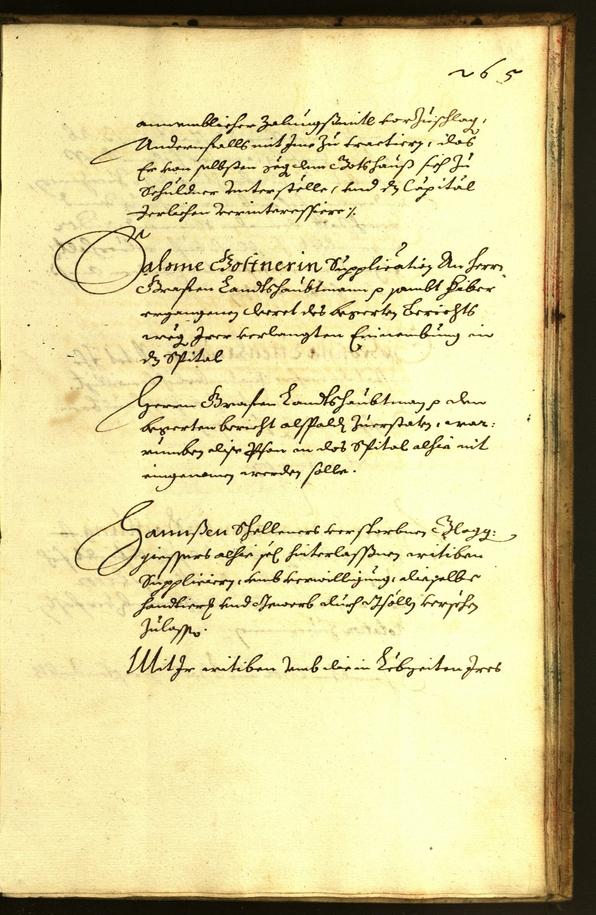 265
annemblicher Zalungsmitl vorzuschlag,
Andernfalls mit Ime zu tractiern, das
Er von selbsten geg dem Gotshauß sich zu
Schuldner unterstelle, und dz Capital
Jerlichen verinteressiere /.
Salome Gostnerin Supplication An herrn
Grafen Landtshaubtmann p sambt hieber
ergangenem decret des begerten Berichts
weg Irer verlangten Einnembung in
dz Spital
Herrn Grafen Landtshaubtman p den
begerten bericht alspald zuerstaten, war:
rumben dise Person in das Spital alhie nit
eingenomen werden solle.
Hannßen Schelleners verstorbnen Glogg:
giessers alhie sel hinterlassnen witiben
Suppliciern, umb verwilligung, dieselbe
handtierg und Gewerb durch Gsölln versehen
zulassen.
Mit Ir witiben umb die in Lebzeiten Ires